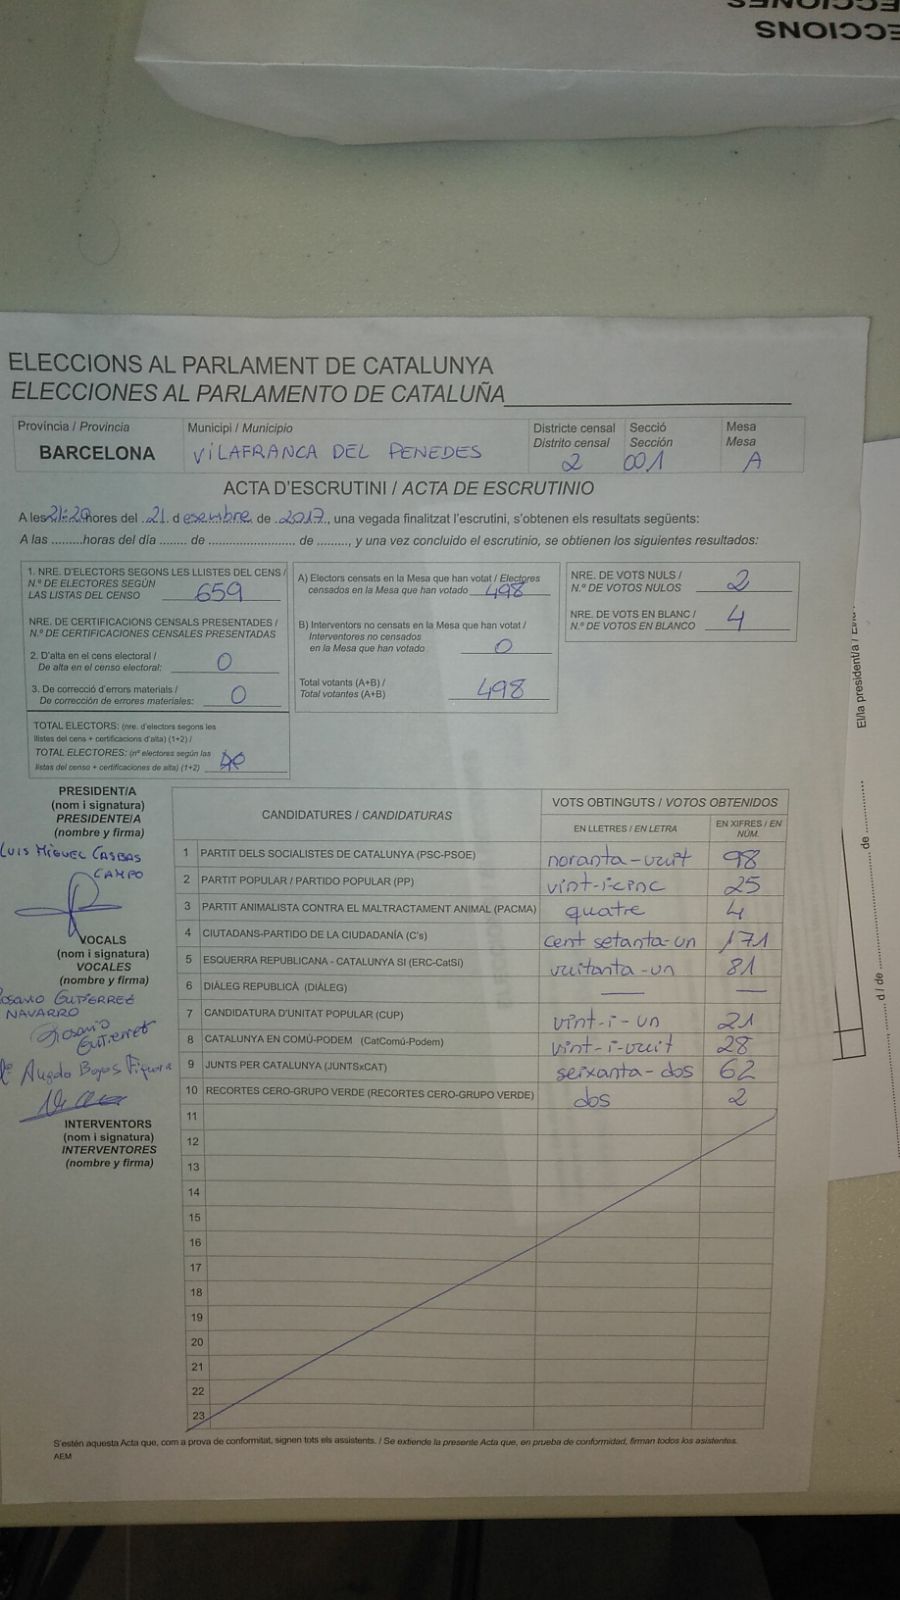 ECCIONES
ECCIONS
ELECCIONS AL PARLAMENT DE CATALUNYA
ELECCIONES AL PARLAMENTO DE CATALUÑA
Província / Provincia
BARCELONA
Municipi / Municipio
VILAFRANCA DEL PENEDES
Districte censal
Distrito censal
2
Secció
Sección
001
Mesa
Mesa
A
ACTA D'ESCRUTINI / ACTA DE ESCRUTINIO
A les 21:20 hores del 21 d esembre de 2017, una vegada finalitzat l'escrutini, s'obtenen els resultats següents:
A las .........horas del día ........ de ......................... de ........., y una vez concluido el escrutinio, se obtienen los siguientes resultados:
1. NRE. D'ELECTORS SEGONS LES LLISTES DEL CENS /
N.º DE ELECTORES SEGÚN
LAS LISTAS DEL CENSO 659
NRE. DE CERTIFICACIONS CENSALS PRESENTADES /
N.º DE CERTIFICACIONES CENSALES PRESENTADAS
2. D'alta en el cens electoral /
De alta en el censo electoral: 0
3. De correcció d'errors materials /
De corrección de errores materiales: 0
TOTAL ELECTORS: (nre. d'electors segons les
llistes del cens + certificacions d'alta) (1+2) /
TOTAL ELECTORES: (nº electores según las
listas del censo + certificaciones de alta) (1+2)
A) Electors censats en la Mesa que han votat / Electores
censados en la Mesa que han votado 498
B) Interventors no censats en la Mesa que han votat /
Interventores no censados
en la Mesa que han votado 0
Total votants (A+B) /
Total votantes (A+B) 498
NRE. DE VOTS NULS /
N.º DE VOTOS NULOS 2
NRE. DE VOTS EN BLANC /
N.º DE VOTOS EN BLANCO 4
PRESIDENT/A
(nom i signatura)
PRESIDENTE/A
(nombre y firma)
LUIS MIGUEL CASBAS
CAMPO
VOCALS
(nom i signatura)
VOCALES
(nombre y firma)
ROSARIO GUTIERREZ
NAVARRO
Rosario
Gutierrez
INTERVENTORS
(nom i signatura)
INTERVENTORES
(nombre y firma)
CANDIDATURES / CANDIDATURAS
VOTS OBTINGUTS / VOTOS OBTENIDOS
EN LLETRES / EN LETRA
EN XIFRES / EN
NÚM.
1 PARTIT DELS SOCIALISTES DE CATALUNYA (PSC-PSOE) noranta-vuit 98
2 PARTIT POPULAR / PARTIDO POPULAR (PP) vint-i-cinc 25
3 PARTIT ANIMALISTA CONTRA EL MALTRACTAMENT ANIMAL (PACMA) quatre 4
4 CIUTADANS-PARTIDO DE LA CIUDADANÍA (C's) cent setanta-un 171
5 ESQUERRA REPUBLICANA - CATALUNYA SI (ERC-CatSí) vuitanta-un 81
6 DIÀLEG REPUBLICÀ (DIÀLEG) — —
7 CANDIDATURA D'UNITAT POPULAR (CUP) vint-i-un 21
8 CATALUNYA EN COMÚ-PODEM (CatComú-Podem) vint-i-vuit 28
9 JUNTS PER CATALUNYA (JUNTSxCAT) seixanta-dos 62
10 RECORTES CERO-GRUPO VERDE (RECORTES CERO-GRUPO VERDE) dos 2
11
12
13
14
15
16
17
18
19
20
21
22
23
S'estén aquesta Acta que, com a prova de conformitat, signen tots els assistents. / Se extiende la presente Acta que, en prueba de conformidad, firman todos los asistentes.
AEM
El/la president/a /
d / de ............................ de